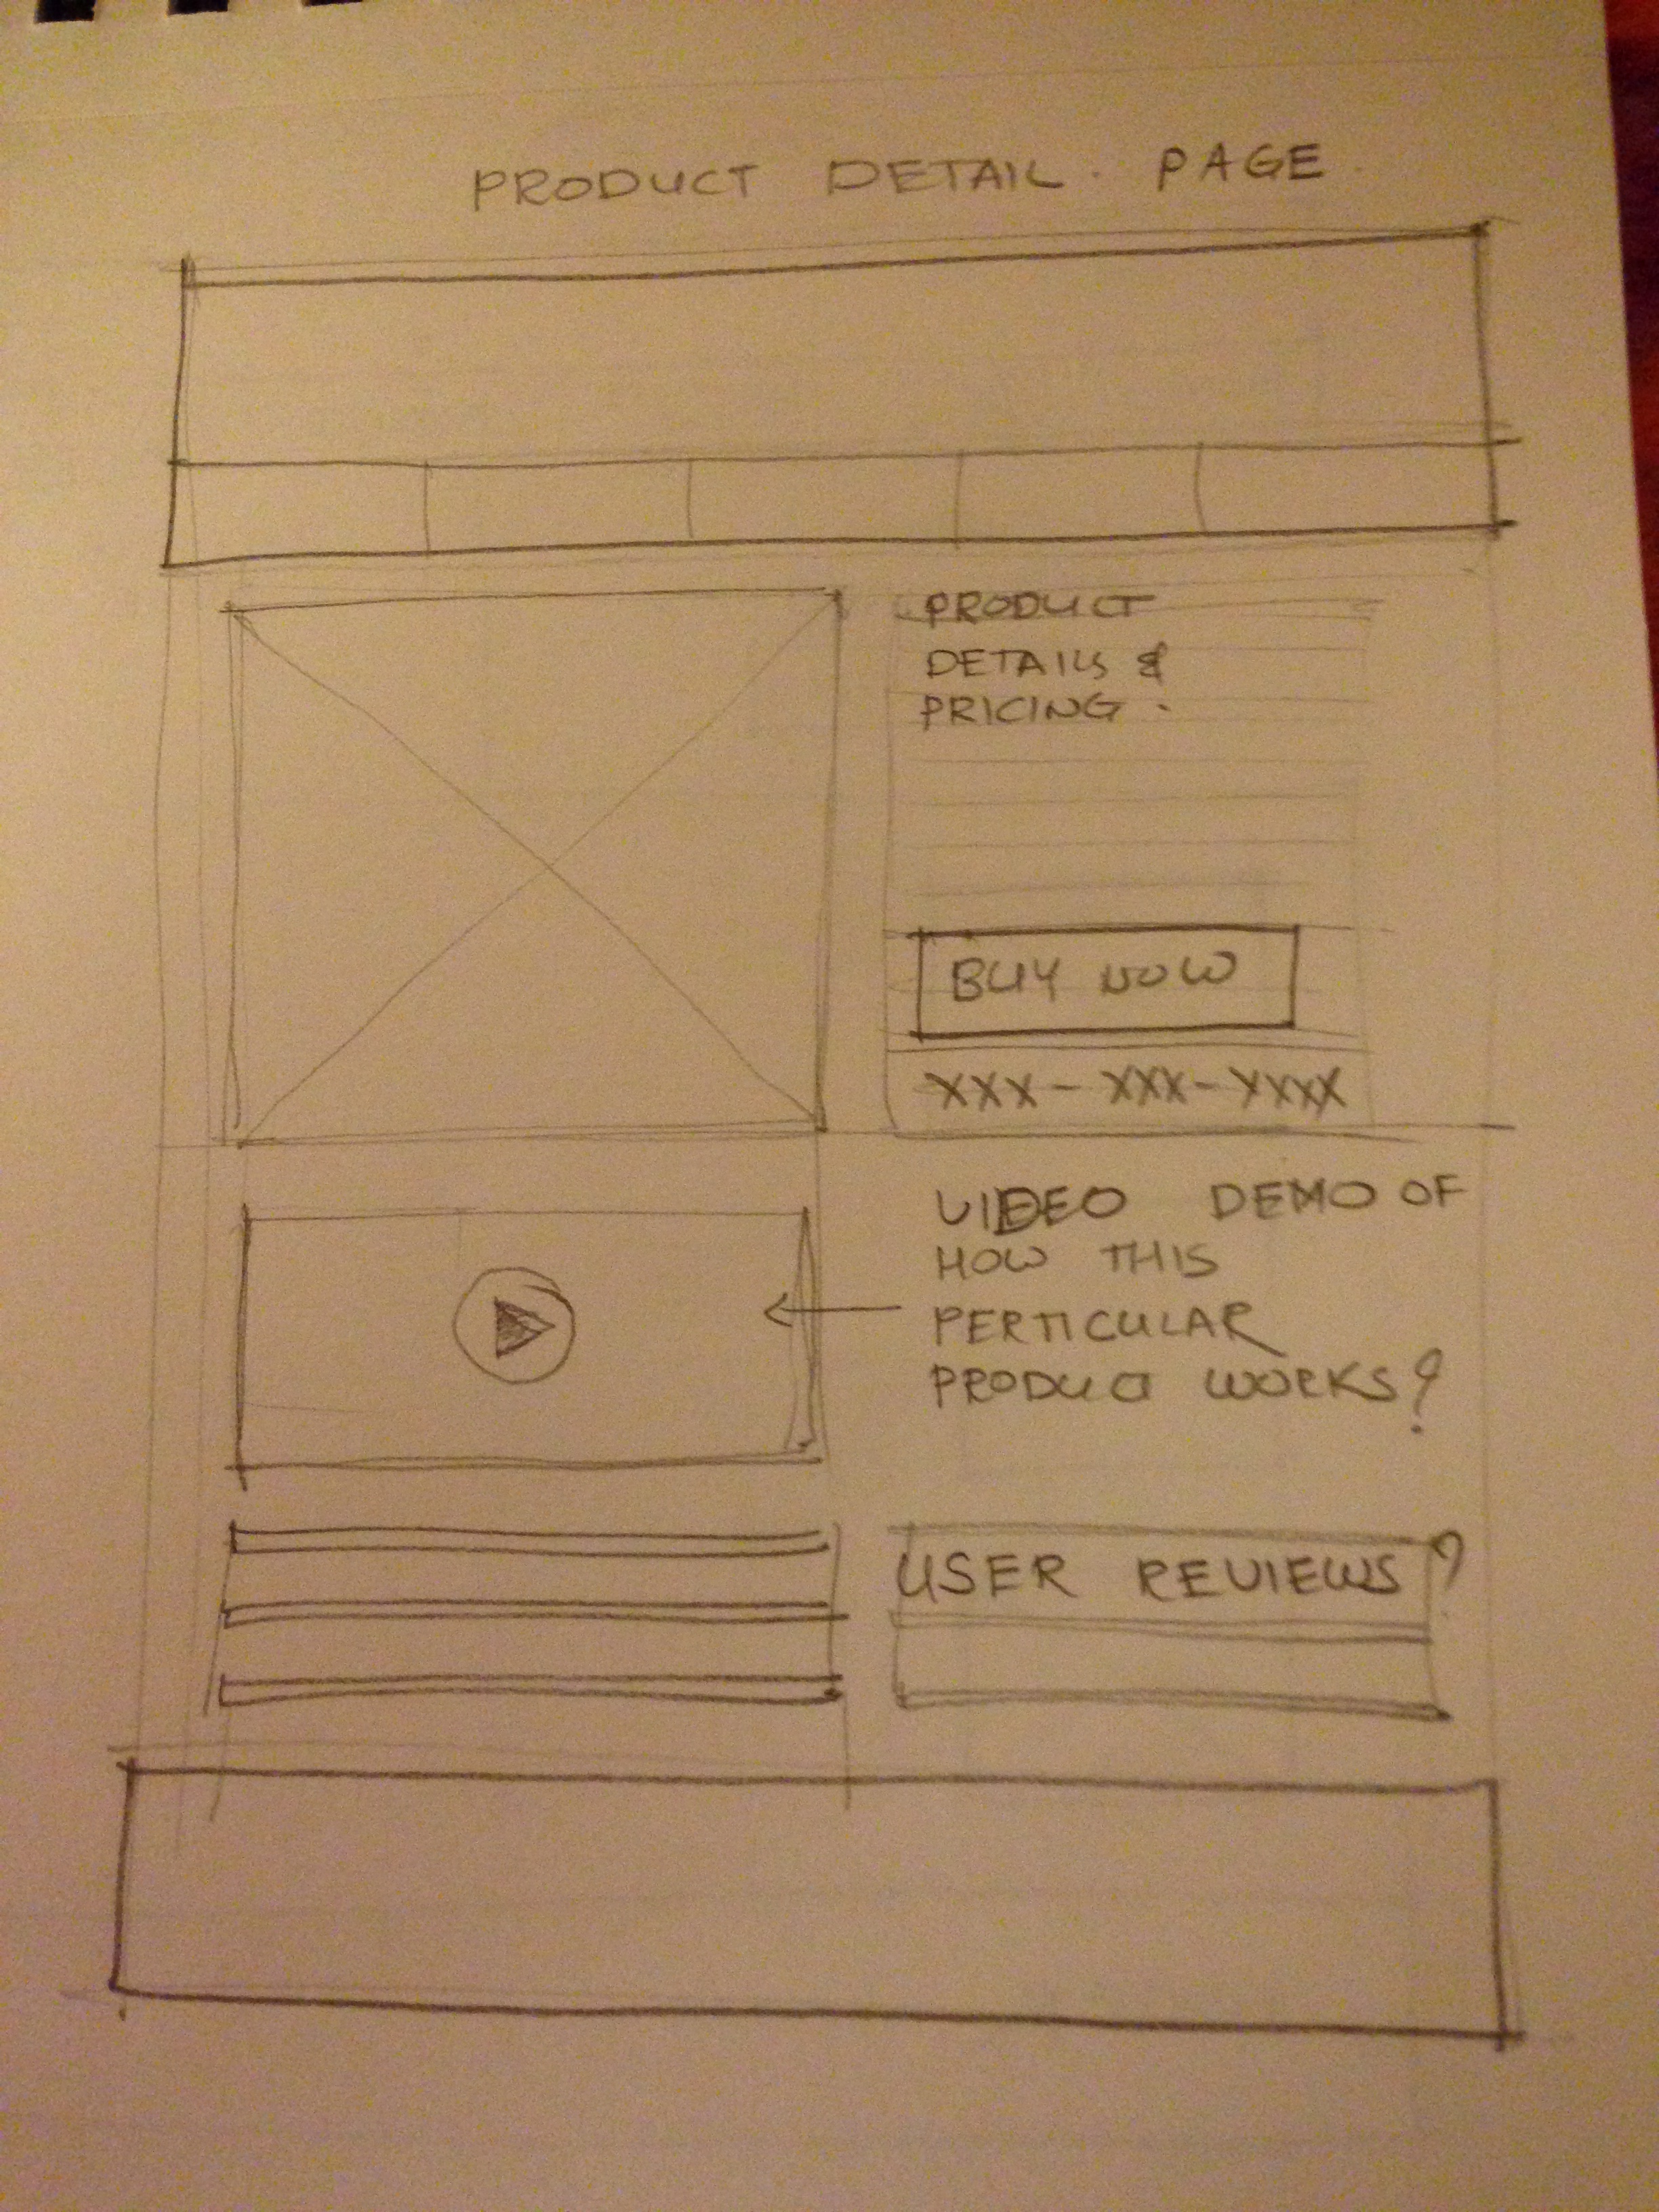 PRODUCT DETAIL. PAGE.
PRODUCT
DETAILS &
PRICING.
BUY NOW
XXX - XXX - XXXX
VIDEO DEMO OF
HOW THIS
PERTICULAR
PRODUCT WORKS?
USER REVIEWS?